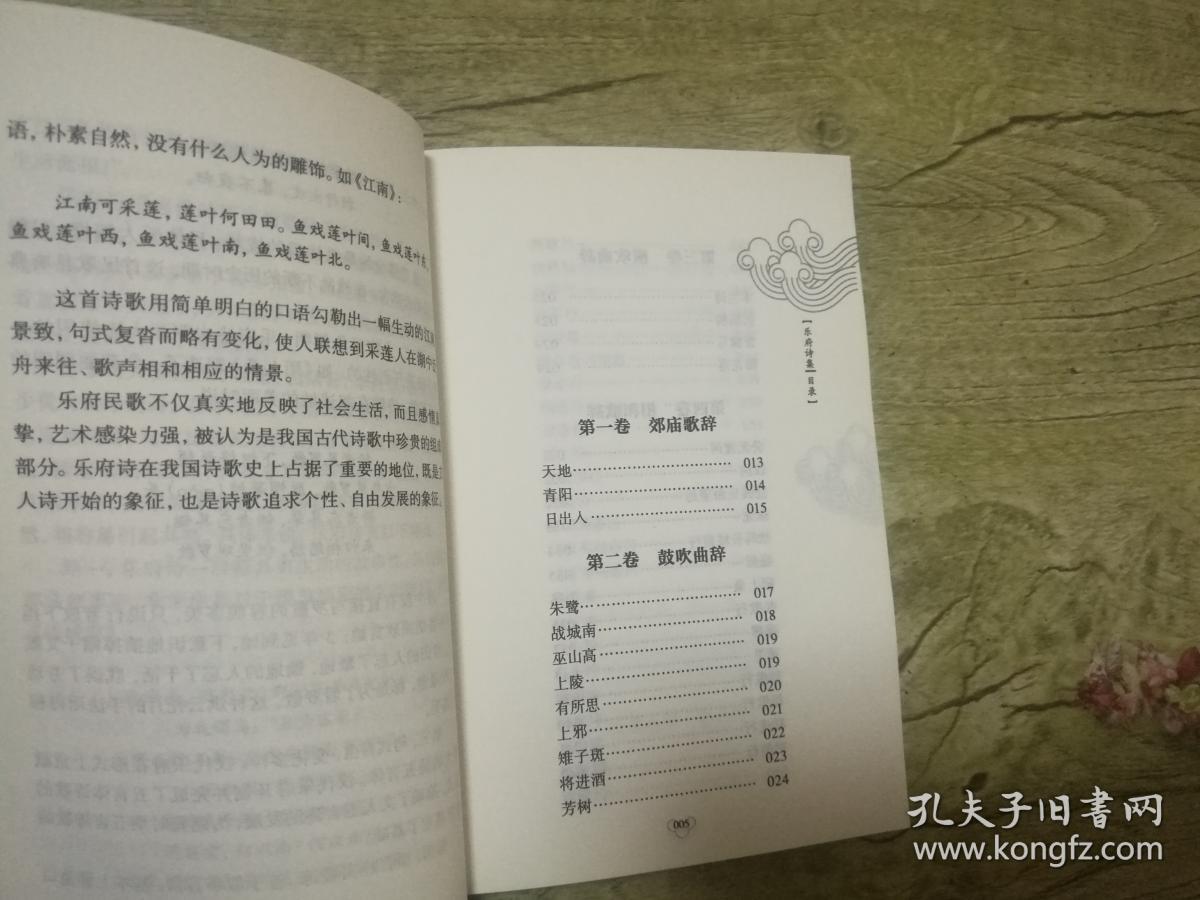 语，朴素自然，没有什么人为的雕饰。如《江南》：
江南可采莲，莲叶何田田。鱼戏莲叶间，鱼戏莲叶东，
鱼戏莲叶西，鱼戏莲叶南，鱼戏莲叶北。
这首诗歌用简单明白的口语勾勒出一幅生动的江
景致，句式复沓而略有变化，使人联想到采莲人在湖中
舟来往、歌声相和相应的情景。
乐府民歌不仅真实地反映了社会生活，而且感情
挚，艺术感染力强，被认为是我国古代诗歌中珍贵的组
部分。乐府诗在我国诗歌史上占据了重要的地位，既是
人诗开始的象征，也是诗歌追求个性、自由发展的象征。
【乐府诗集|目录】
第一卷 郊庙歌辞
天地……………………013
青阳……………………014
日出人…………………015
第二卷 鼓吹曲辞
朱鹭……………………017
战城南…………………018
巫山高…………………019
上陵……………………019
有所思…………………020
上邪……………………021
雉子斑…………………022
将进酒…………………023
芳树……………………024
005
孔夫子旧书网
www.kongfz.com